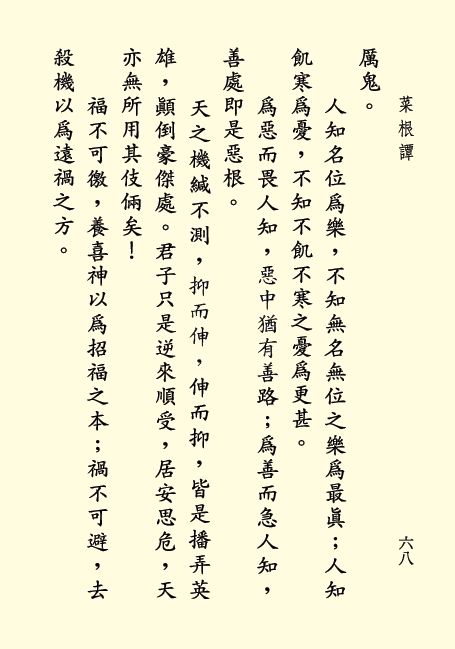 菜根譚
六八
厲鬼。
人知名位爲樂，不知無名無位之樂爲最眞；人知
飢寒爲憂，不知不飢不寒之憂爲更甚。
爲惡而畏人知，惡中猶有善路；爲善而急人知，
善處即是惡根。
天之機緘不測，抑而伸，伸而抑，皆是播弄英
雄，顚倒豪傑處。君子只是逆來順受，居安思危，天
亦無所用其伎倆矣！
福不可徼，養喜神以爲招福之本；禍不可避，去
殺機以爲遠禍之方。